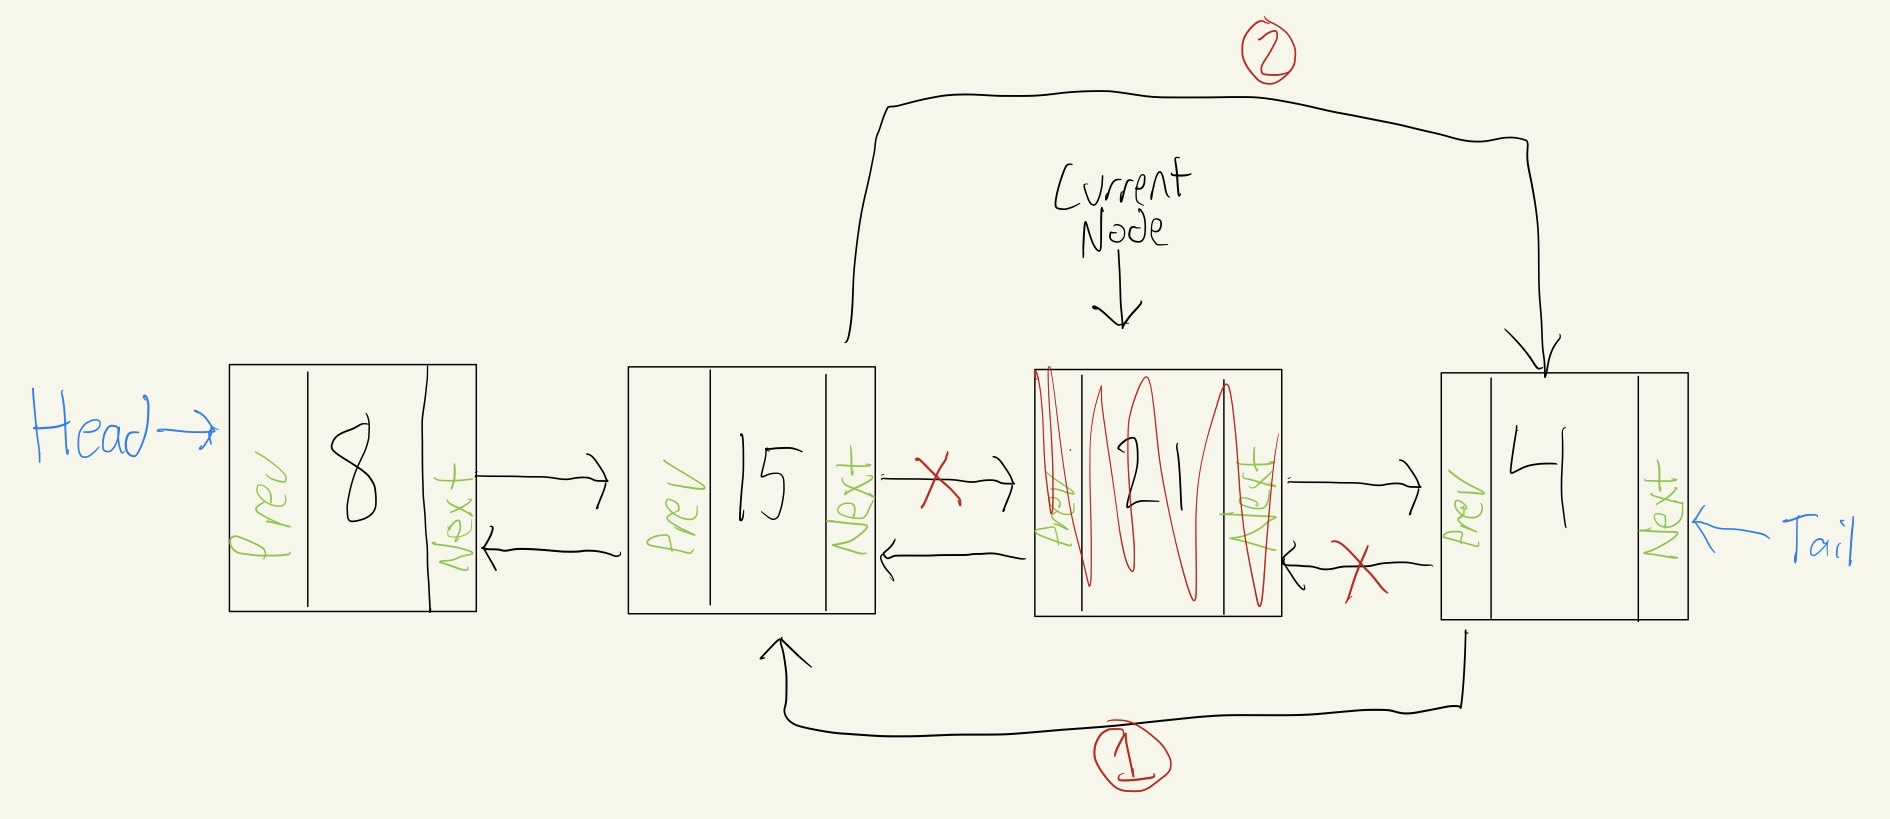 2
Current
Node
Head
Prev
8
Next
Prev
15
Next
Prev
21
Next
Prev
4
Next
Tail
1